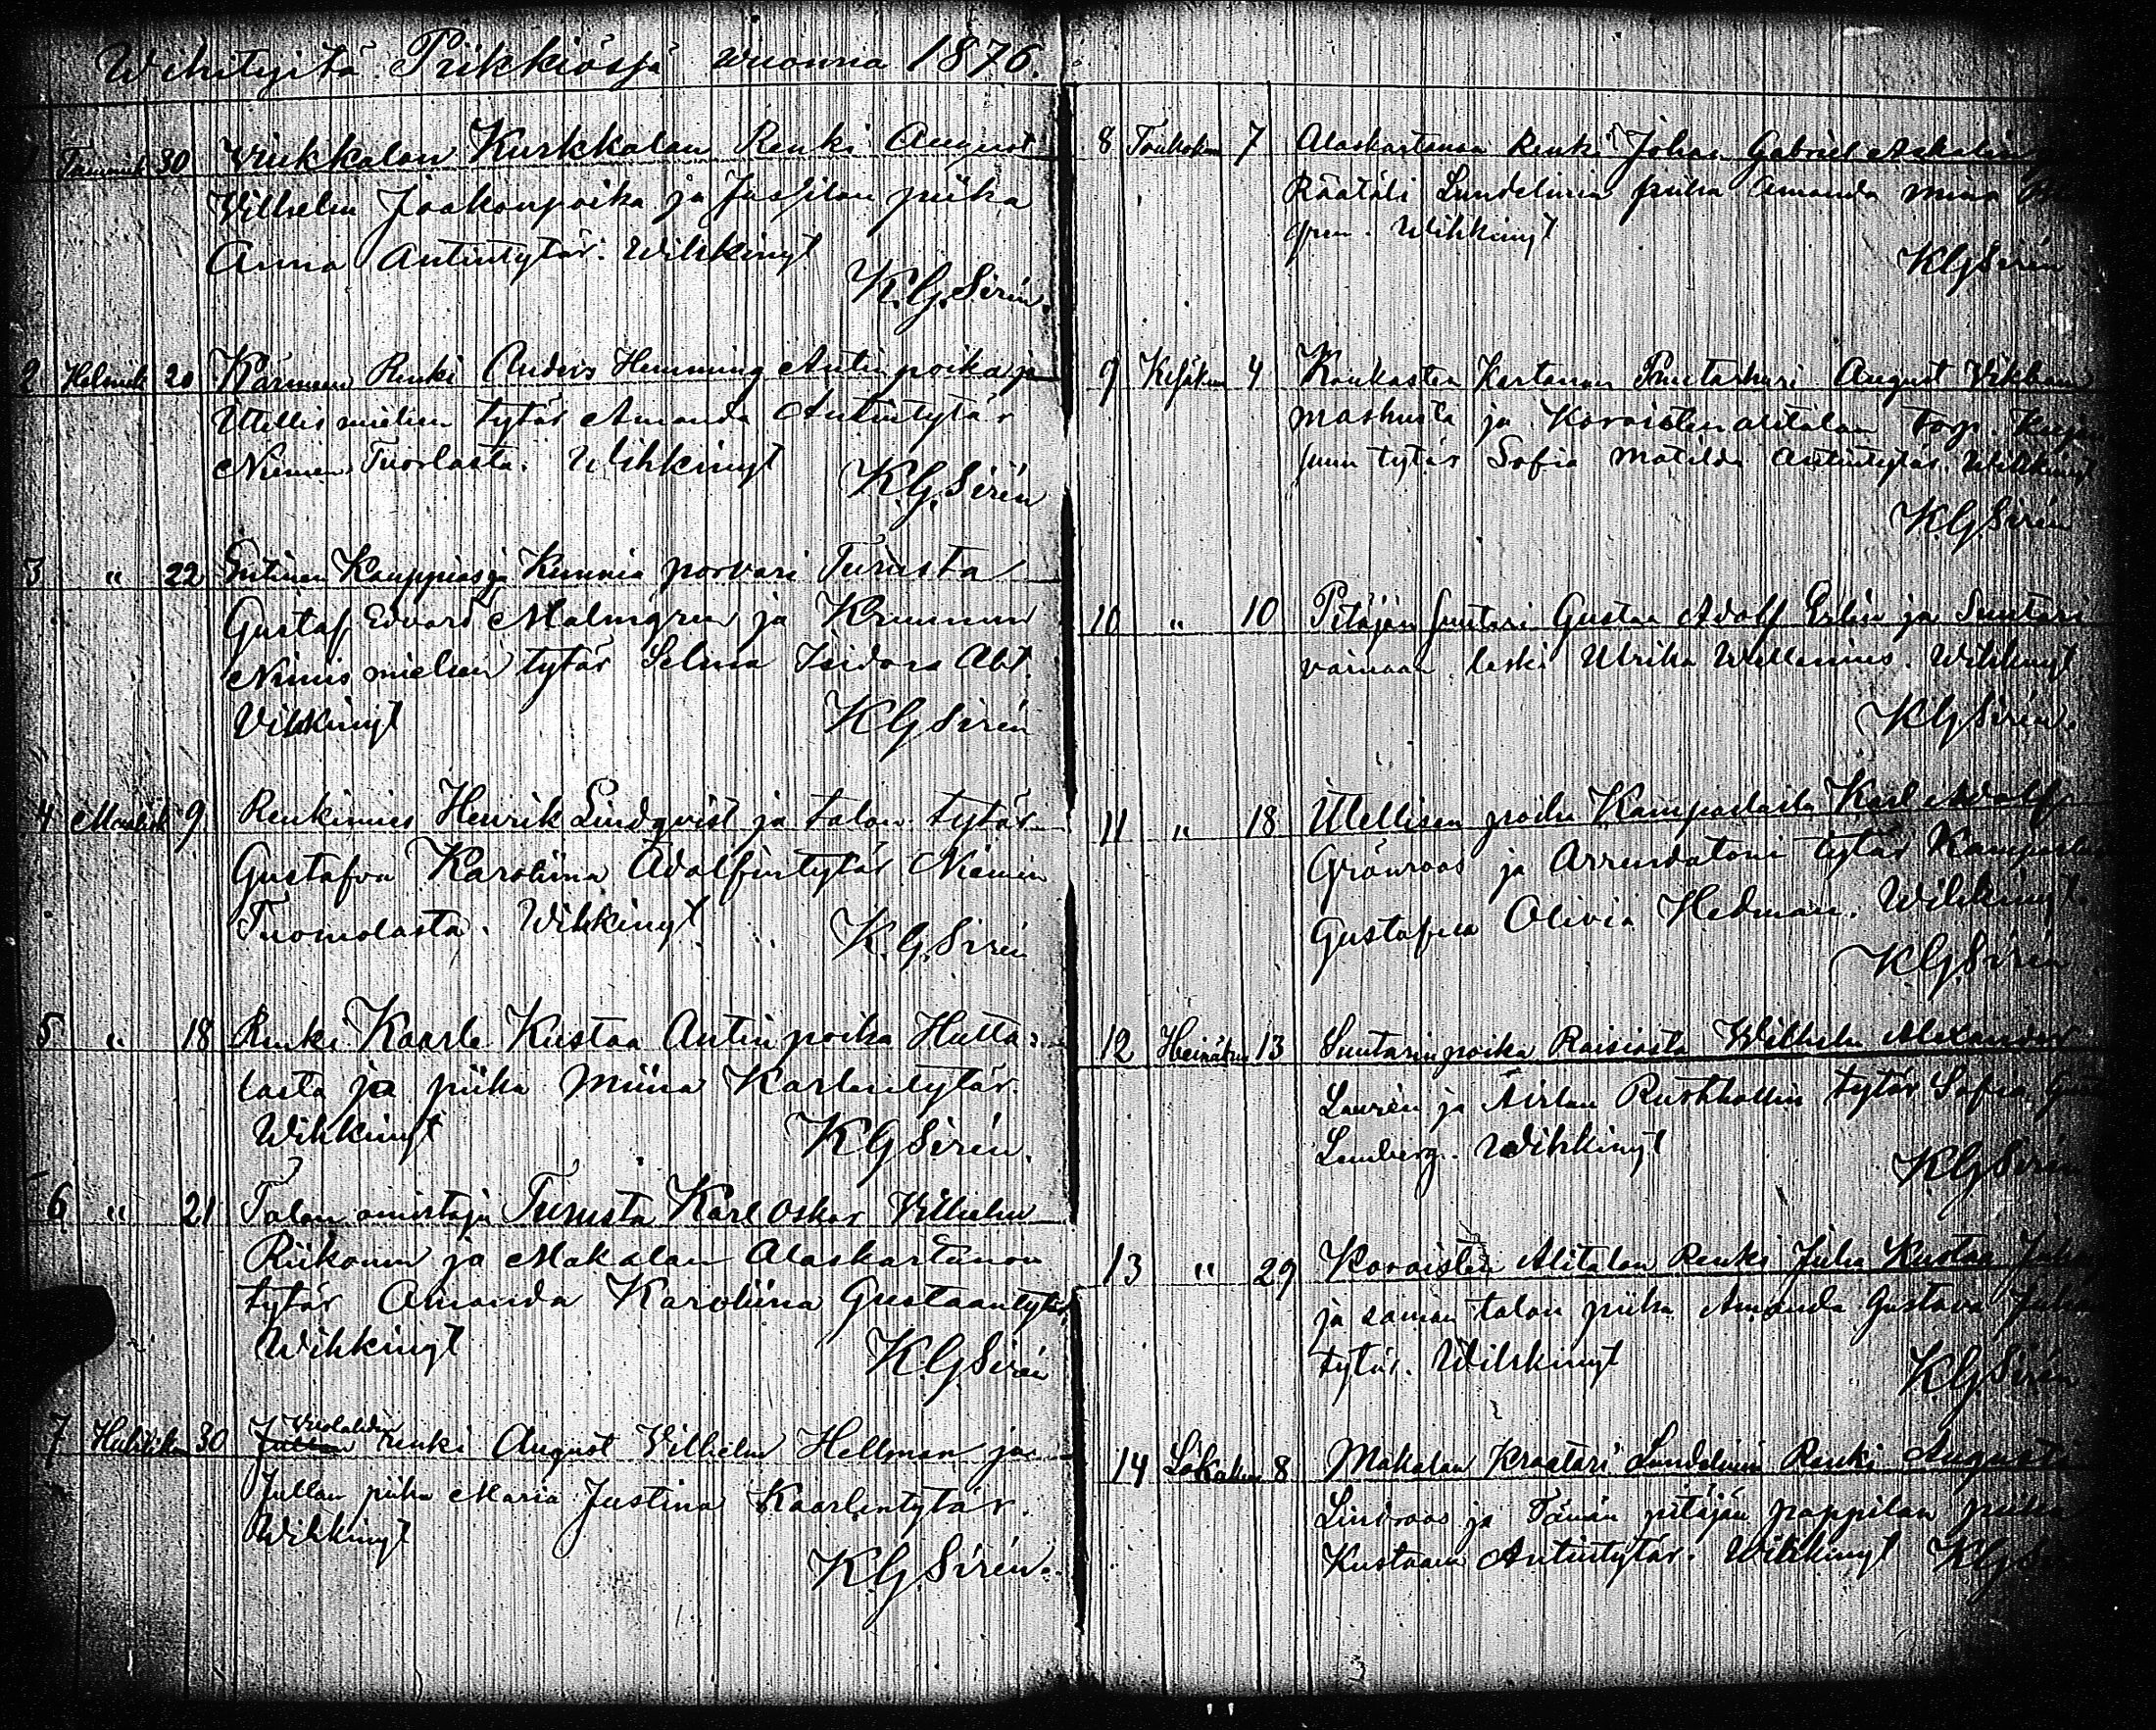 Wihityitä Piikkiössä wuonna 1876.
1 Tammik 30 Viukkalan Kurkkalan Renki August
Wilhelm Jaakonpoika ja Jussilan piika
Anna Antintytär. Wihkinyt
K.G. Sirén.
2 Helmik 20 Renki Anders Hemming Antinpoika ja
Itellis miehen tytär Amanda Antintytär
Niemen Tuorlasta. Wihkinyt
K.G. Sirén
3 " 22 Entinen Kauppias ja Kunnia porvari Turusta
Gustaf Edvard Malmgren ja
miehen tytär Selma Isidora
Vihkinyt
K G Sirén
4 Maalisk 9 Renkimies Henrik Lindqvist ja talon tytär
Gustafva Karoliina Adolfintytär Niemen
Tuomolasta. Wihkinyt
K.G. Sirén
5 " 18 Renki Kaarle Kustaa Antin poika Hutta-
lasta ja piika Miina Karlentytär.
Wihkinyt
K G Sirén.
6 " 21 Talon omistaja Turusta Karl Oskar Vilhelm
Riikonen ja Makalan Alaskartanon
tytär Amanda Karoliina Gustaantytär,
Wihkinyt
K.G. Sirén
7 Huhtikuu 30 renki August Vilhelm Hellman ja
Jullan piika Maria Justina Kaarlentytär.
Wihkinyt
K.G. Sirén.
8 Toukokuu 7 Alaskartanon Renki Johan Gabriel
Räätäli Lundelinin piika Amanda Mina
gren. Wihkinyt
K G Sirén
9 Kesäkuu 4 Kartanon Puutarhuri August
Maskusta ja Koroisten alitalan torp.
tytär Sofia Matilda Antintytär. Wihkinyt
K.G. Sirén
10 " 10 Pitäjän Suutari Gustaa Adolf Erlin ja Suutari
vainaan leski Ulrika Wallenius. Wihkinyt
K.G. Sirén.
11 " 18 Itellisen poika Karl Adolf
Grönroos ja Arrendatorin tytär
Gustafva Olivia Hedman. Wihkinyt.
K G Sirén
12 Heinäkuu 13 Suutarin poika Raisiosta Wilhelm Alexander
Laurén ja tytär Sofia
Lemberg. Wihkinyt
K.G. Sirén
13 " 29 Koroisten Alitalon Renki Juha Kustaa
ja saman talon piika Amanda Gustava
tytär. Wihkinyt
K.G. Sirén
14 Lokakuu 8 Makalan Kraatari Lundelinin Renki August
Lindroos ja Tämän pitäjän pappilan piika
Kustaava Antintytär. Wihkinyt K G